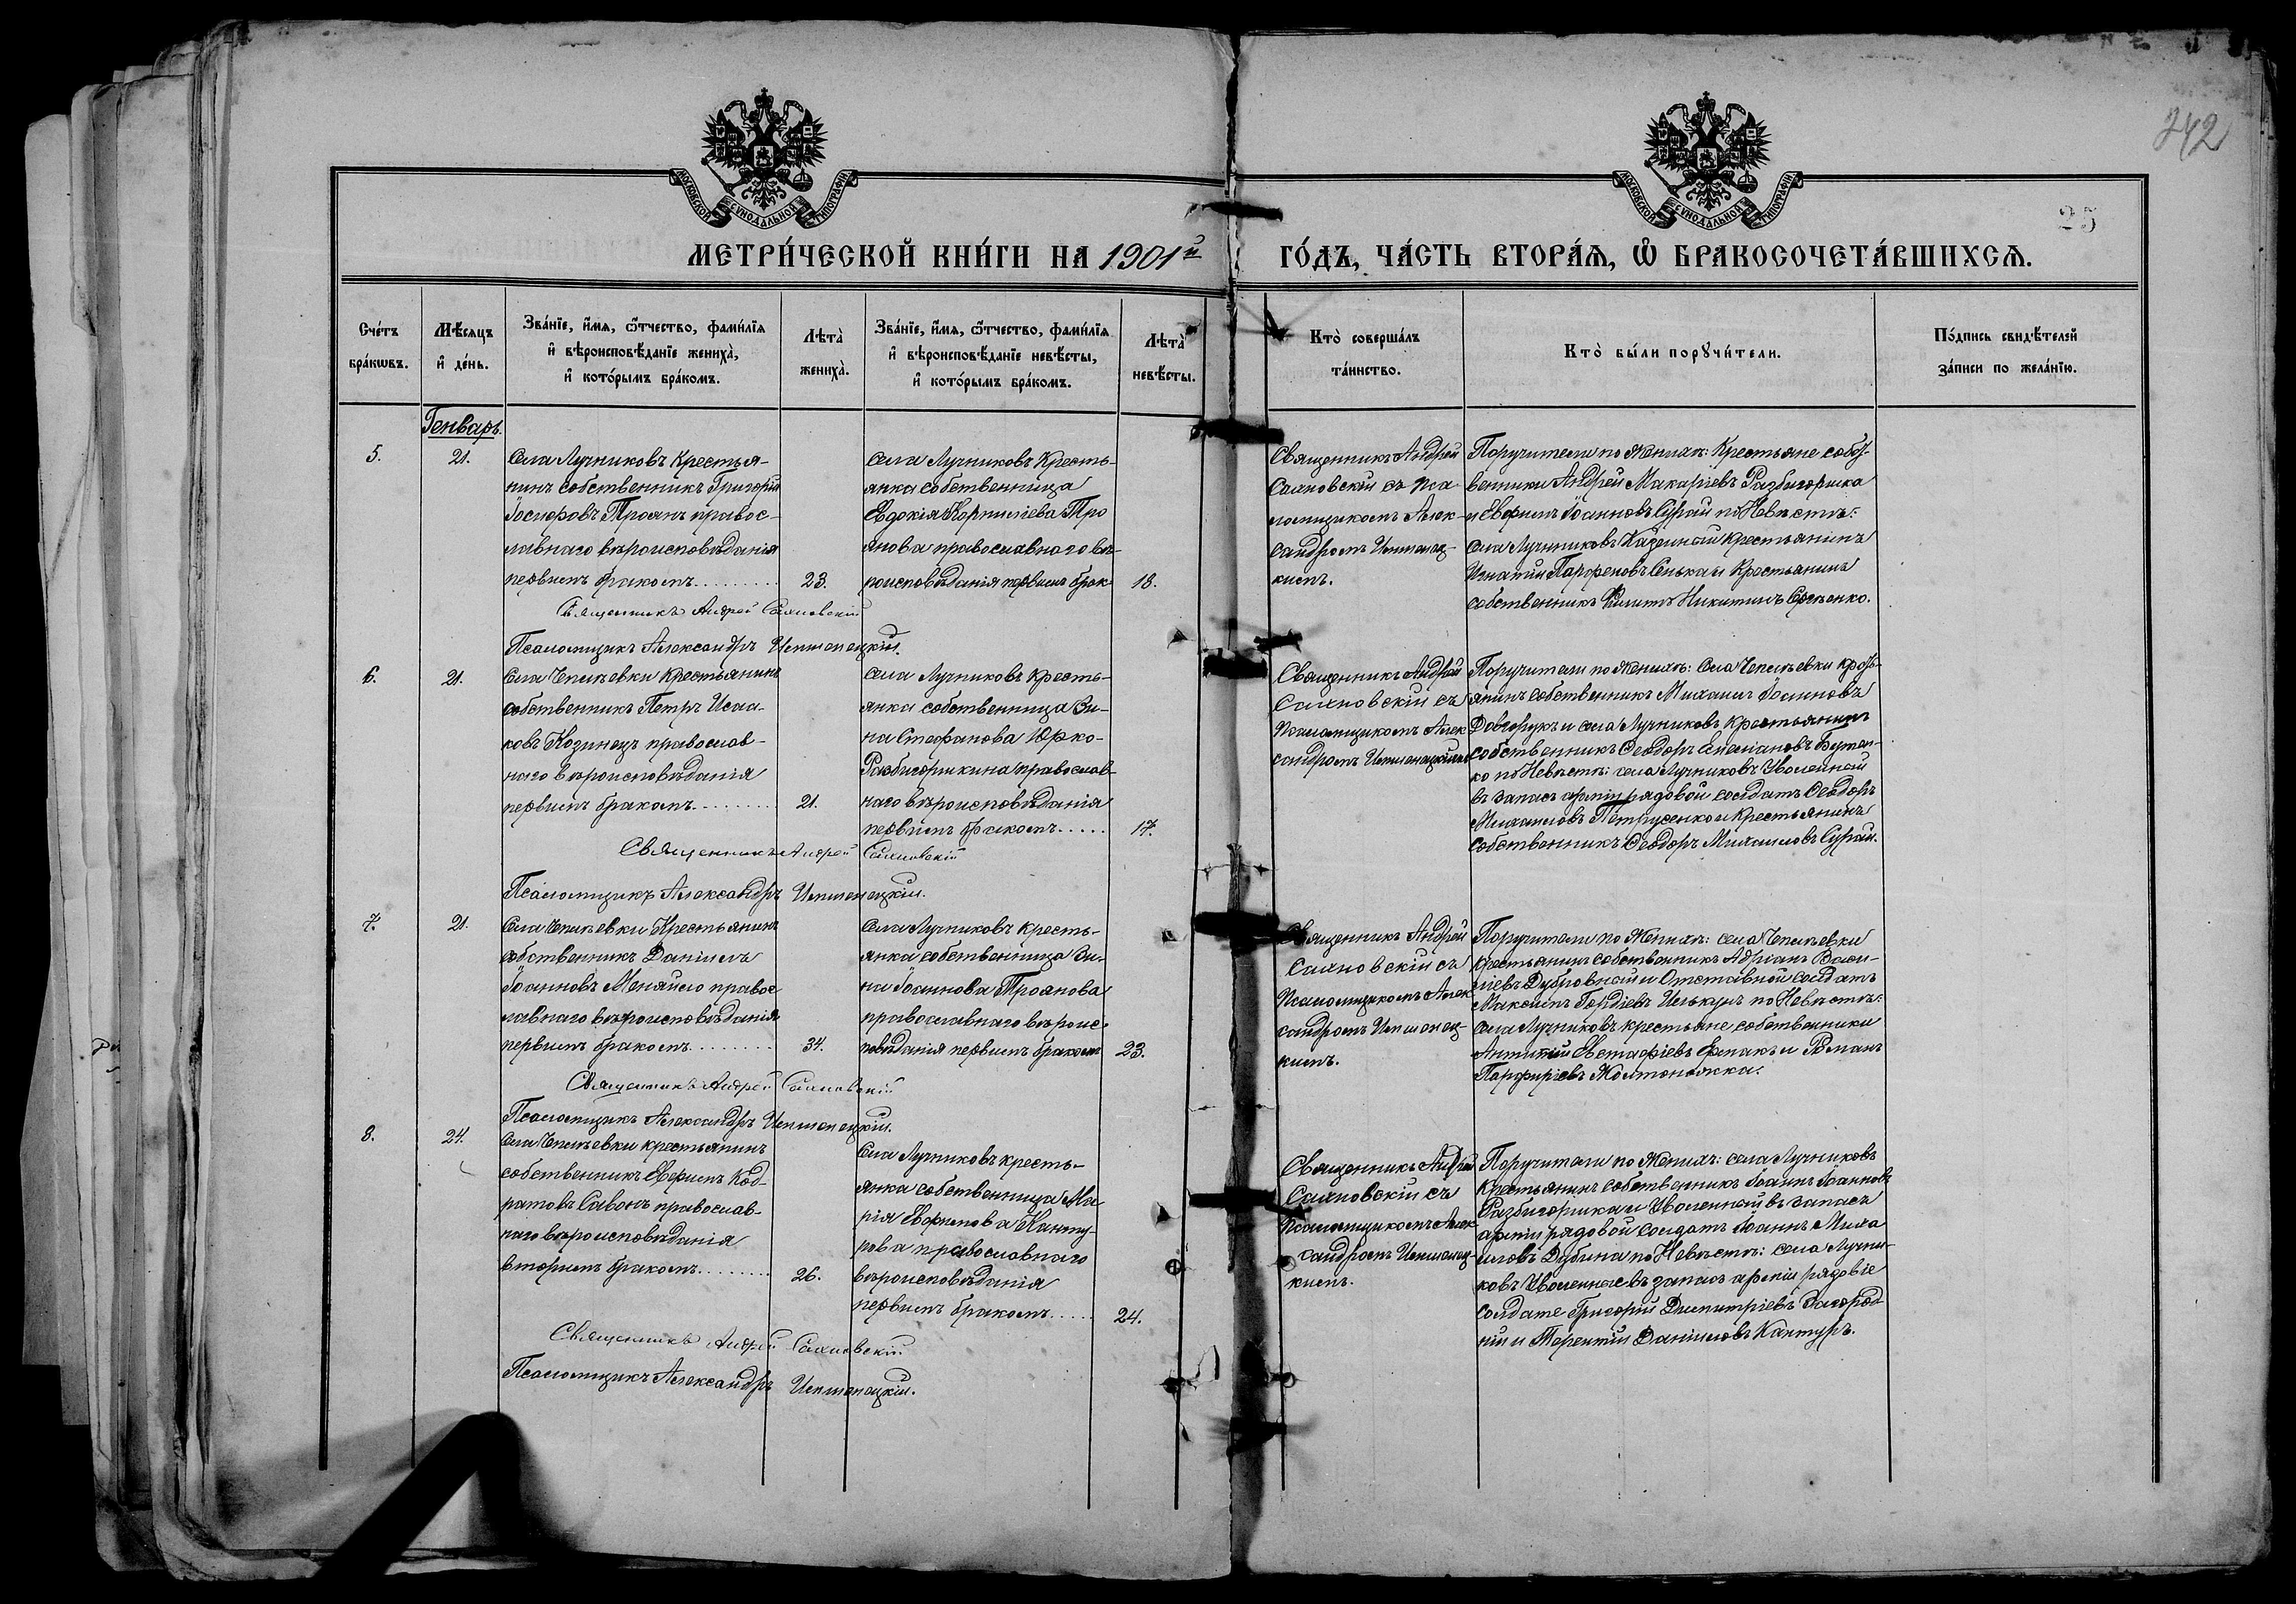 242
25
МОСКОВСКОЙ СѴНОДАЛЬНОЙ ТИПОГРАФІИ
МОСКОВСКОЙ СѴНОДАЛЬНОЙ ТИПОГРАФІИ
МЕТРИ́ЧЕСКОЙ КНИ́ГИ НА 1901й ГО́ДЪ, ЧА́СТЬ ВТОРА́Я, Ѡ БРАКОСОЧЕТА́ВШИХСЯ.
Сче́тъ бра́кѡвъ.
Мѣ́сяцъ и де́нь.
Зва́нїе, и́мя, ѻ́тчество, фами́лїя и вѣроисповѣ́данїе жениха̀, и кото́рымъ бра́комъ.
Лѣта̀ жениха̀.
Зва́нїе, и́мя, ѻ́тчество, фами́лїя и вѣроисповѣ́данїе невѣ́сты, и кото́рымъ бра́комъ.
Лѣта̀ невѣ́сты.
Кто̀ соверша́лъ та́инство.
Кто̀ бы́ли порꙋчи́тели.
По́дпись свидѣ́телей за́писи по жела́нїю.
Генварь.
5.
21.
Села Лучниковъ Крестья-
нинъ собственникъ Григорій
Іосифовъ Троянъ правос-
лавнаго вѣроисповѣданія
первымъ бракомъ.........
23.
села Лучниковъ Кресть-
янка собственница
Евдокія Корнилiева Тро
янова православнаго вѣ-
роисповѣданія первымъ брак.
18.
Священникъ Андрей
Сахновскій съ пса
ломщикомъ Алек-
сандромъ
кимъ.
Поручители по Женихѣ: Крестьяне собст-
венники Андрей Макаріевъ Разбигоринка
и Евфимъ Іоанновъ Сурай по Невѣстѣ:
села Лучниковъ Казенный крестьянинъ
Игнатій Парфеновъ и Крестьянинъ
собственникъ Никитинъ
Священникъ Андрей Сахновскій
Псаломщикъ Александръ
6.
21.
Села Чепилевки Крестьянинъ
собственникъ Петръ Исаа-
ковъ Козинецъ православ-
наго вѣроисповѣданія
первымъ бракомъ.........
21.
села Лучниковъ Кресть-
янка собственница Зи-
на Стефанова Юрко-
Разбигоринкина православ-
наго вѣроисповѣданія
первымъ бракомъ.....
17.
Священникъ Андрей
Сахновскій съ
Псаломщикомъ Алек
сандромъ
Поручители по Женихѣ: села Чепилевки кресть-
янинъ собственникъ Михаилъ Іоанновъ
Довгорукъ и села Лучниковъ Крестьянинъ
собственникъ Ѳеодоръ Емеліановъ Бутен-
ко по Невѣстѣ: села Лучниковъ Уволенный
въ запасъ арміи рядовой солдатъ Ѳеодоръ
Михаиловъ Петрусенко и Крестьянинъ
собственникъ Ѳеодоръ Михаиловъ Сурай.
Священникъ Андрей Сахновскій
Псаломщикъ Александръ
7.
21.
Села Чепилевки Крестьянинъ
собственникъ Даніилъ
Іоанновъ Меняйло правос
лавнаго вѣроисповѣданія
первымъ бракомъ.........
34.
Села Лучниковъ Кресть-
янка собственница Зи-
на Іоаннова Троянова
православнаго вѣроис-
повѣданія первымъ бракомъ
23.
Священникъ Андрей
Сахновскій съ
Псаломщикомъ Алек
сандромъ
кимъ.
Поручители по Женихѣ: села Чепилевки
Крестьянинъ собственникъ Адріанъ Васи-
ліевъ Дубровный и Отставной солдатъ
Максимъ Гордіевъ по Невѣстѣ:
села Лучниковъ крестьяне собственники
Евстафіевъ и Романъ
Парфиріевъ Жолтоножка.
Священникъ Андрей Сахновскій
Псаломщикъ Александръ
8.
24.
Села Чепилевки крестьянинъ
собственникъ Евфимъ Код-
ратовъ Савонъ православ-
наго вѣроисповѣданія
вторымъ бракомъ........
26.
Села Лучниковъ кресть-
янка собственница Ма-
рія ЕвфимоваКанту-
рова православнаго
вѣроисповѣданія
первымъ бракомъ.....
24.
Священникъ Андрей
Сахновскій съ
Псаломщикомъ Алек
сандромъ
кимъ.
Поручители по Женихѣ: села Лучниковъ
Крестьянинъ собственникъ Іоаннъ Іоанновъ
Разбигоринка и Уволенный въ запасъ
арміи рядовой солдатъ Іоаннъ Миха
иловъ Дубина по Невѣстѣ: села Лучни-
ковъ Уволенные въ запасъ арміи рядовіе
солдате Григорій Димитріевъ Загород
ній и Терентій Даніиловъ Кантуръ.
Священникъ Андрей Сахновскій
Псаломщикъ Александръ